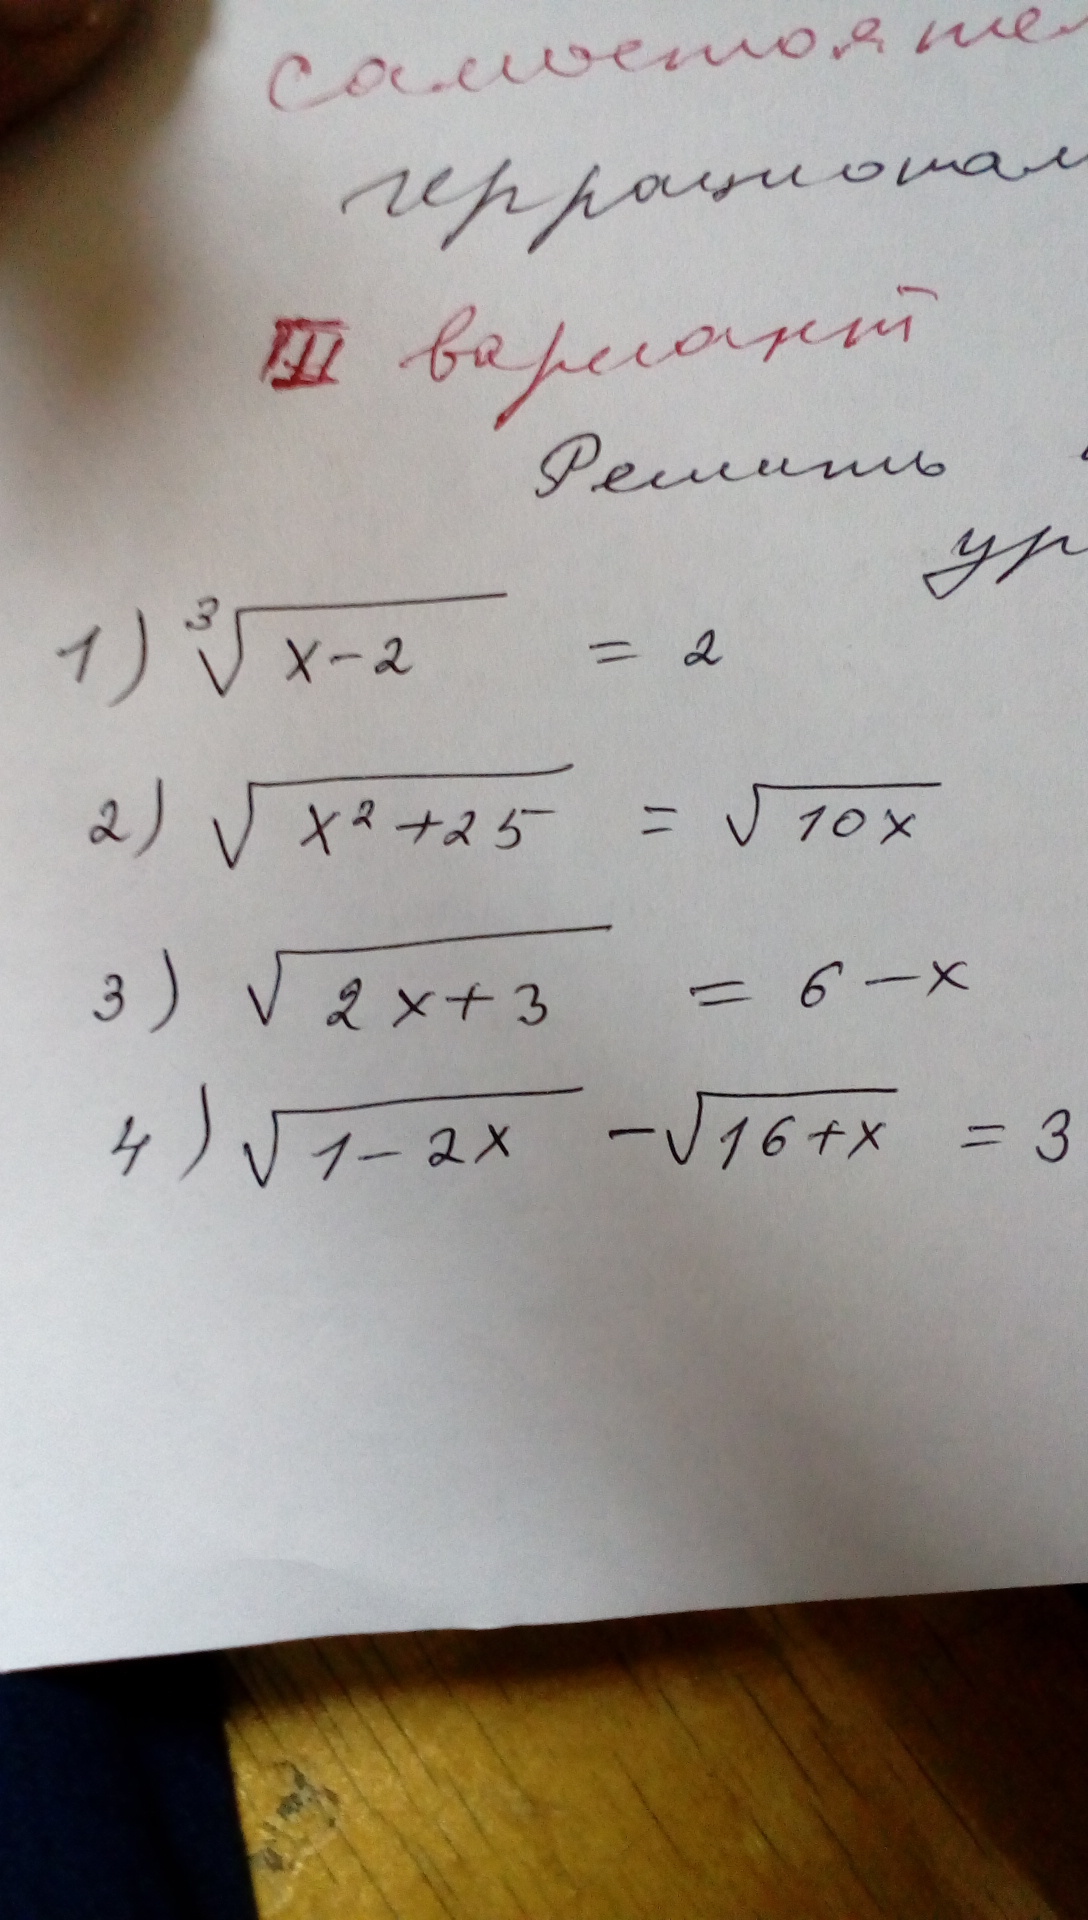 самостояте
иррационал
III вариант
Решить
ур
1) ∛(x-2) = 2
2) √(x²+25) = √(10x)
3) √(2x+3) = 6-x
4) √(1-2x) - √(16+x) = 3